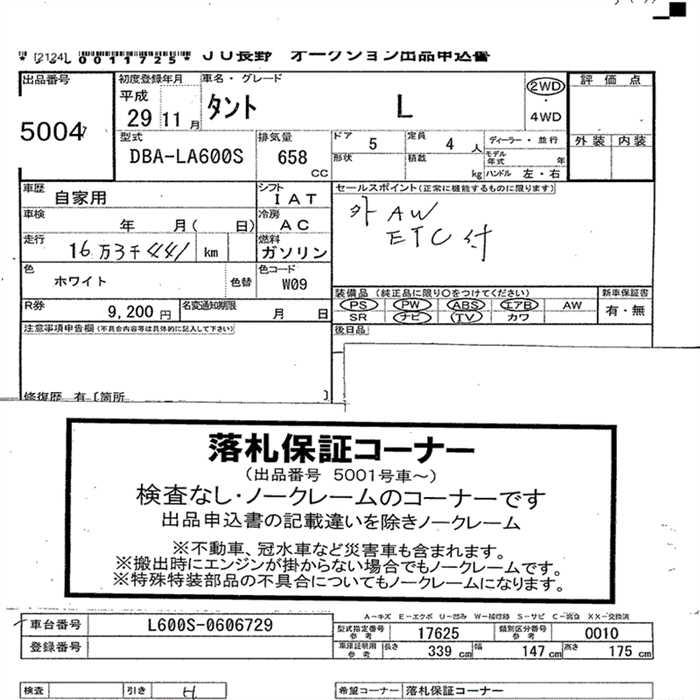 * [2124] 0011725* JU長野 オークション出品申込書
出品番号 初度登録年月 車名・グレード 2WD 評価点
5004 平成 29 11月 タント L ・ 4WD
型式 排気量 ドア 5 定員 4 人 ディーラー・並行 外装 内装
DBA-LA600S 658 CC 形状 積載 kg モデル年式 年 ハンドル 左・右
車歴 自家用 シフト IAT セールスポイント(正常に機能するものに限ります)
車検 年 月( 日) 冷房 AC 外 AW
走行 16万3千441 km 燃料 ガソリン ETC付
色 ホワイト 色替 色コード W09
装備品 (純正品に限り○をつけてください) 新車保証書
R券 9,200円 名変通知期限 月 日 PS PW ABS エアB AW 有・無
SR ナビ TV カワ
注意事項申告欄(不具合内容等は具体的に記入して下さい) 後日品
修復歴 有 [箇所 ]
落札保証コーナー
(出品番号 5001号車~)
検査なし・ノークレームのコーナーです
出品申込書の記載違いを除きノークレーム
※不動車、冠水車など災害車も含まれます。
※搬出時にエンジンが掛からない場合でもノークレームです。
※特殊特装部品の不具合についてもノークレームになります。
A-キズ E-エクボ U-凹み W-補修跡 S-サビ C-腐食 XX-交換済
車台番号 L600S-0606729 型式指定番号 参考 17625 類別区分番号 参考 0010
登録番号 車庫証明用 参考 長さ 339 cm 幅 147 cm 高さ 175 cm
検査 引き H 希望コーナー 落札保証コーナー